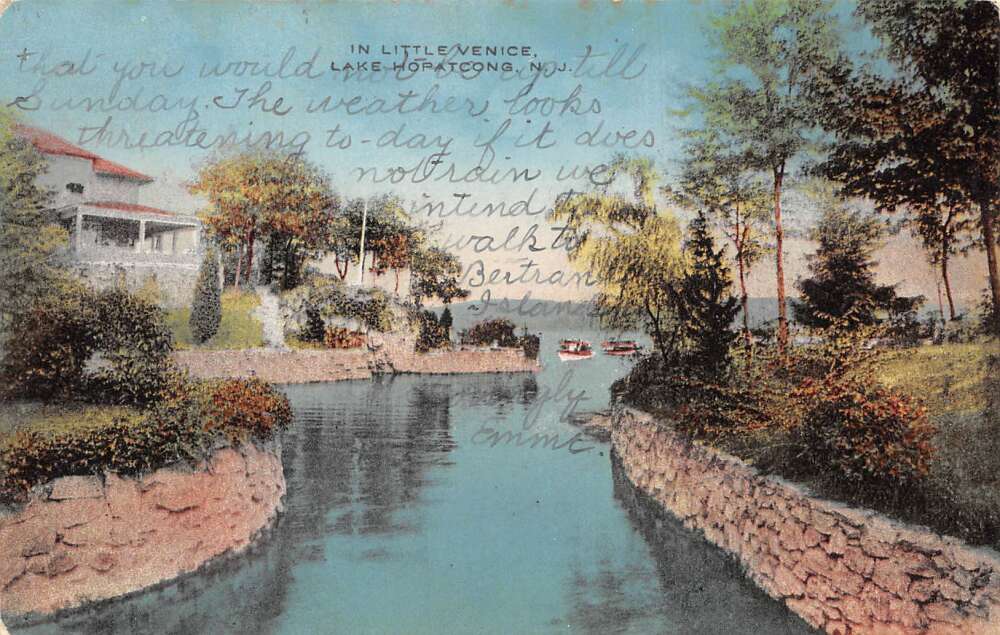 IN LITTLE VENICE,
LAKE HOPATCONG, N. J.
that you would not be up till
Sunday. The weather looks
threatening to-day if it does
not rain we
intend to
walk to
Bertran
Island
Emme.